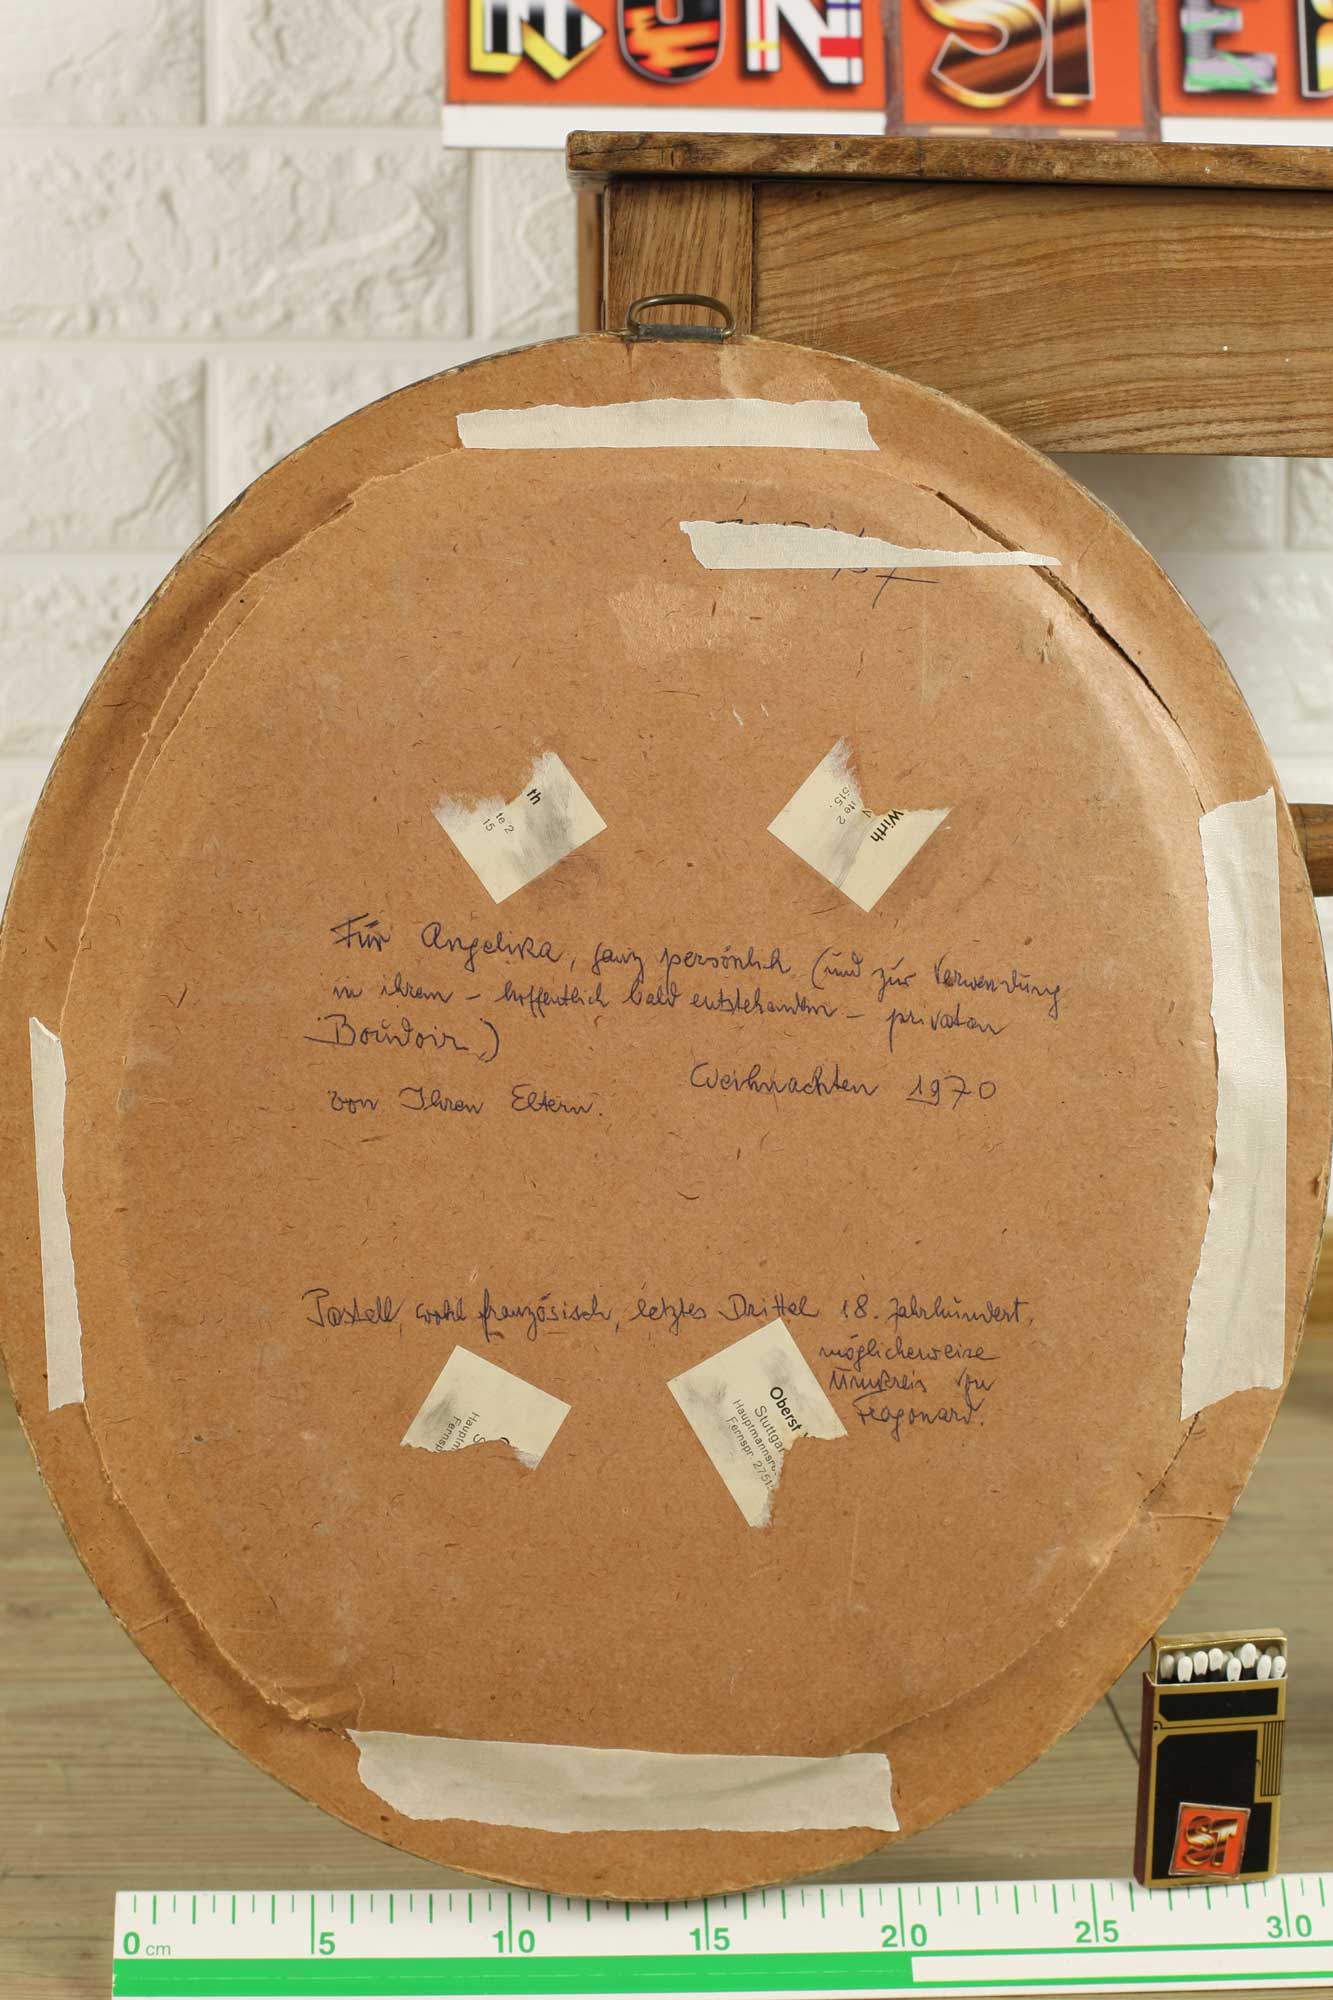 KUNST
th
te 2
15
Wirth
ite 2
515.
Für Angelika, ganz persönlich (und zur Verwendung
in ihrem – hoffentlich bald entstehenden – privaten
Boudoir)
Weihnachten 1970
von Ihren Eltern.
Pastell, wohl französisch, letztes Drittel 18. Jahrhundert,
möglicherweise
Umkreis zu
Fragonard.
Oberst
Stuttgar
Hauptmannsre
Fernspr. 2751
Haupt
Fernsp
ST
0 cm 5 10 15 20 25 30